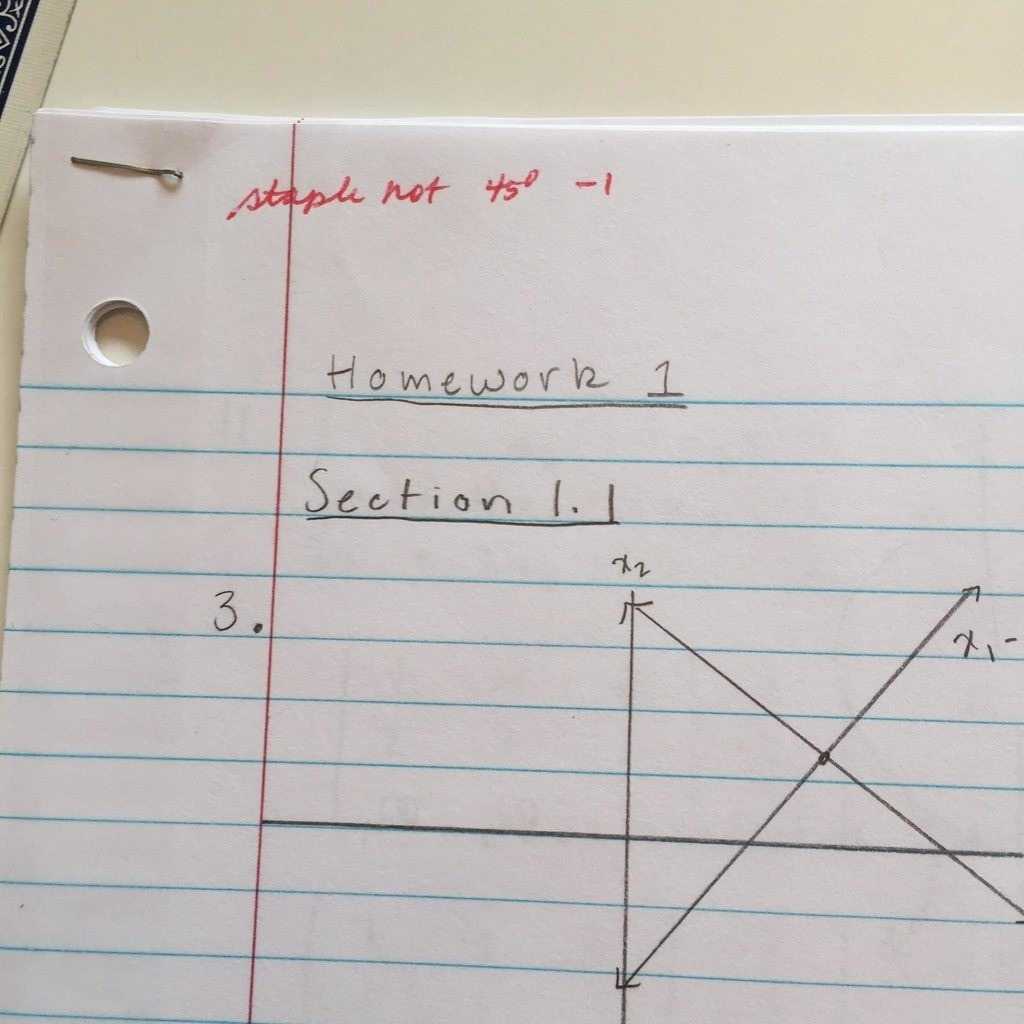 staple not 45° -1
Homework 1
Section 1.1
3.
x₂
x₁-